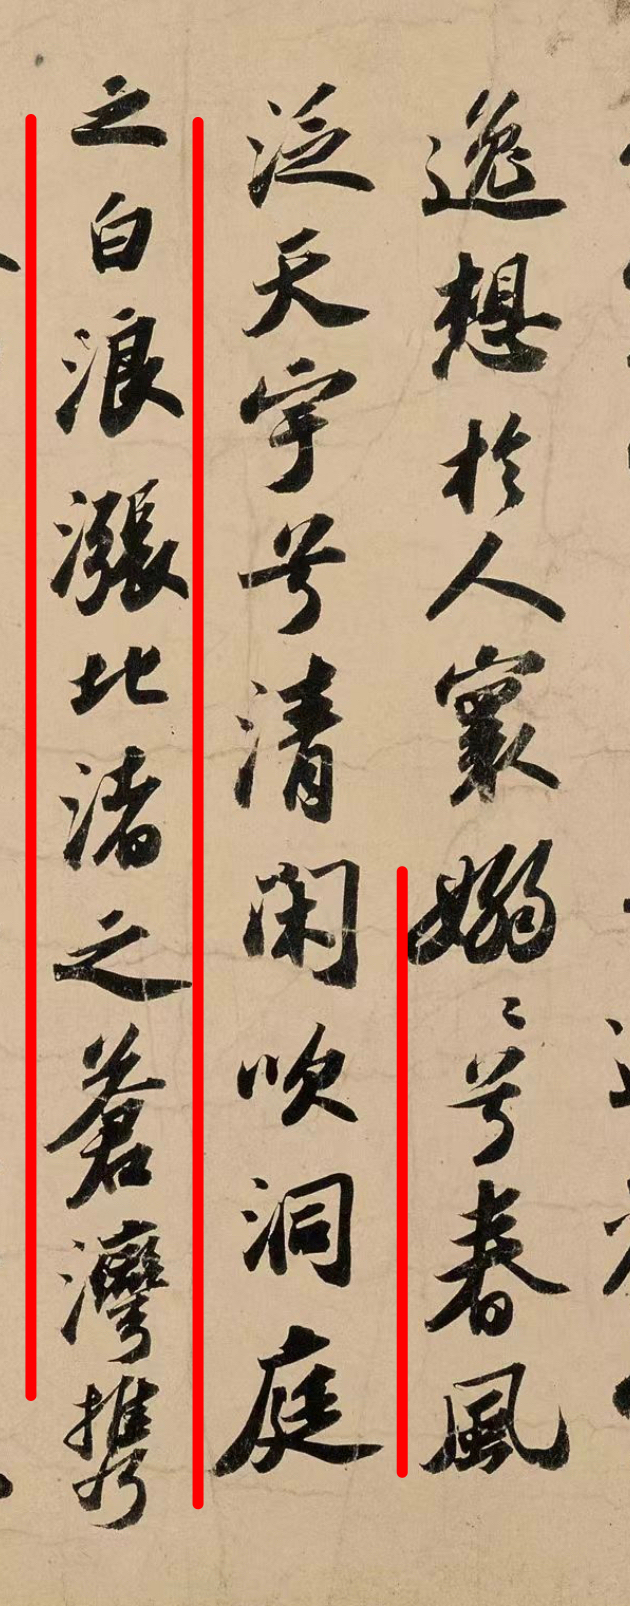 逸想於人寰嫋〻兮春風
泛天宇兮清閑吹洞庭
之白浪漲北渚之蒼灣攜